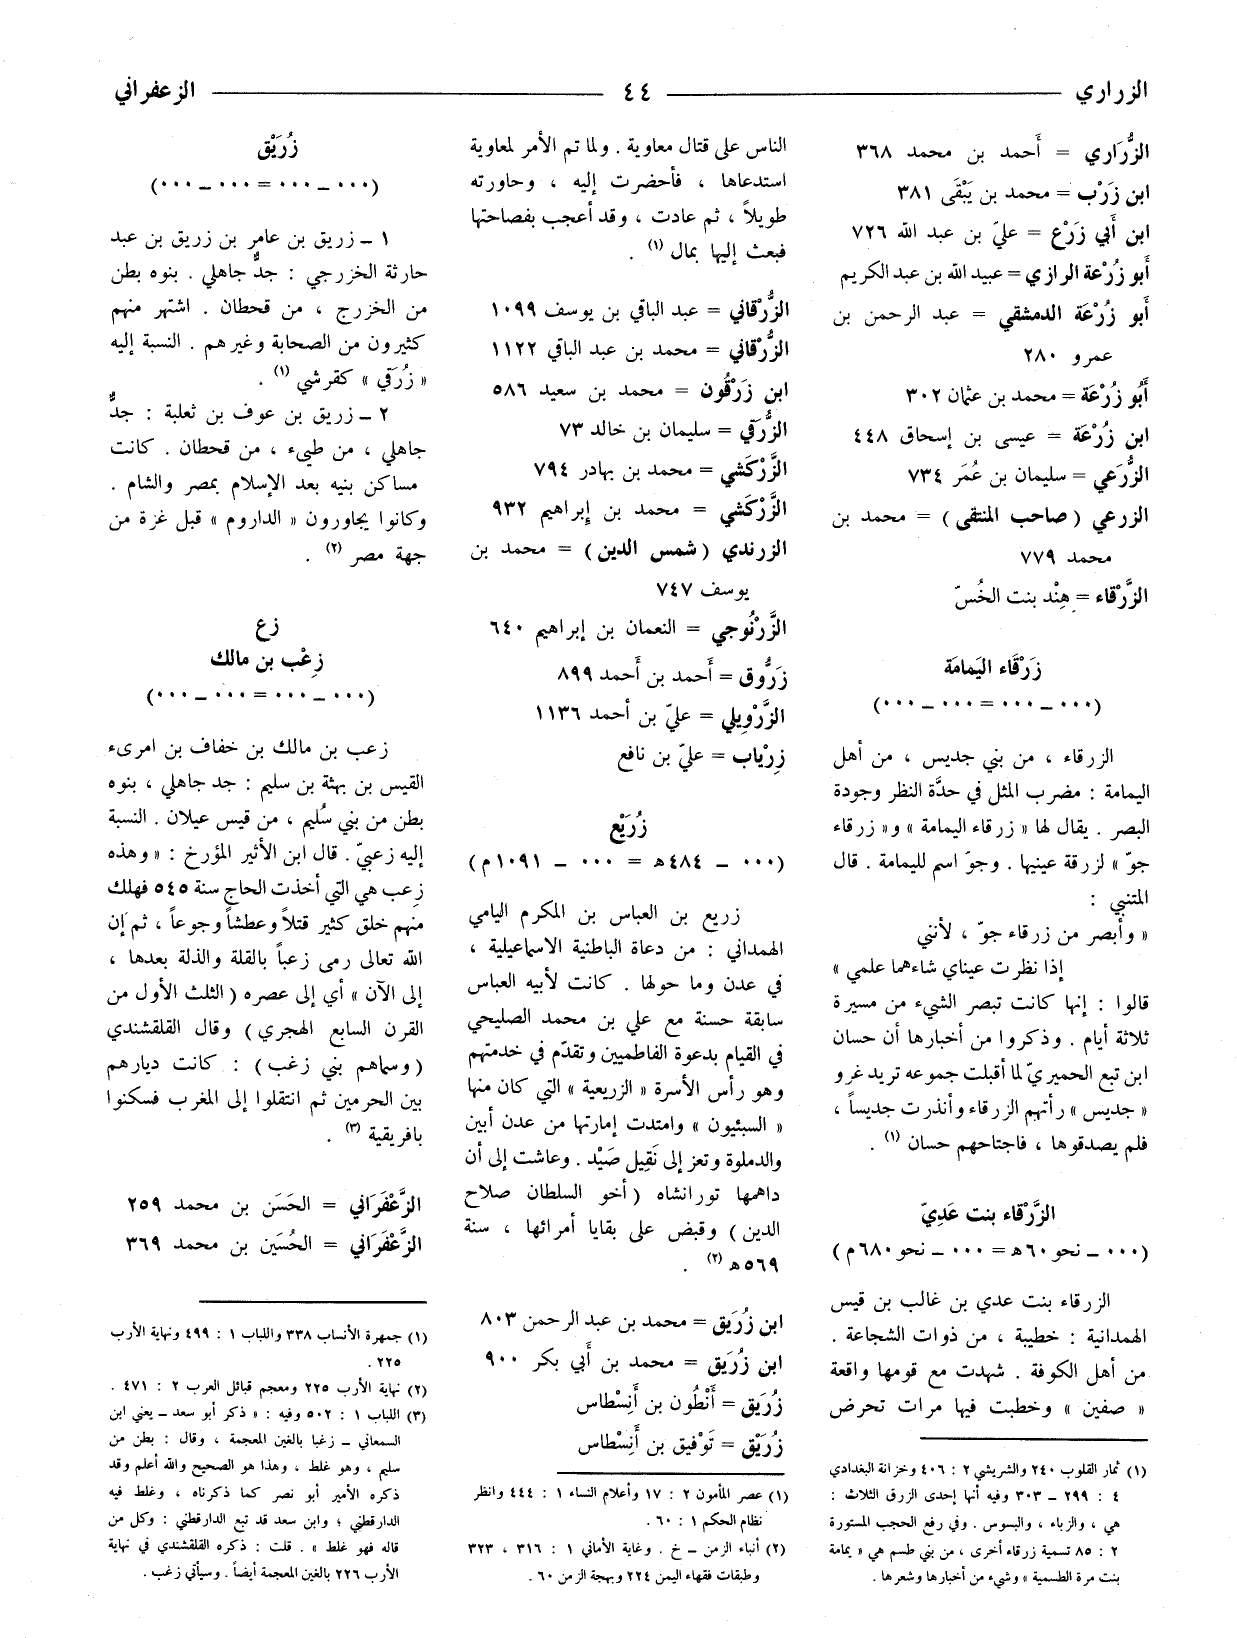 الزراري ٤٤ الزعفراني
الزُّرَاري = أَحمد بن محمد ٣٦٨
ابن زَرْب = محمد بن يَبْقَى ٣٨١
ابن أَبي زَرْع = عليّ بن عبد الله ٧٢٦
أَبو زُرْعة الرازي = عبيد الله بن عبد الكريم
أَبو زُرْعَة الدمشقي = عبد الرحمن بن
عمرو ٢٨٠
أَبُو زُرْعَة = محمد بن عثمان ٣٠٢
ابن زُرْعَة = عيسى بن إسحاق ٤٤٨
الزُّرَعي = سليمان بن عُمَر ٧٣٤
الزرعي ( صاحب المنتقى ) = محمد بن
محمد ٧٧٩
الزَّرْقاء = هِنْد بنت الخُسّ
زَرْقَاء اليَمامَة
(٠٠٠ ــ ٠٠٠ = ٠٠٠ ــ ٠٠٠)
الزرقاء ، من بني جديس ، من أهل
اليمامة : مضرب المثل في حدَّة النظر وجودة
البصر . يقال لها « زرقاء اليمامة » و« زرقاء
جوّ » لزرقة عينيها . وجوّ اسم لليمامة . قال
المتنبي :
« وأبصر من زرقاء جوّ ، لأنني
إذا نظرت عيناي شاءهما علمي »
قالوا : إنها كانت تبصر الشيء من مسيرة
ثلاثة أيام . وذكروا من أخبارها أن حسان
ابن تبع الحميريّ لما أقبلت جموعه تريد غزو
« جديس » رأتهم الزرقاء وأنذرت جديساً ،
فلم يصدقوها ، فاجتاحهم حسان (١) .
الزَّرْقاء بنت عَدِيّ
(٠٠٠ ــ نحو ٦٠ ه = ٠٠٠ ــ نحو ٦٨٠ م)
الزرقاء بنت عدي بن غالب بن قيس
الهمدانية : خطيبة ، من ذوات الشجاعة .
من أهل الكوفة . شهدت مع قومها واقعة
« صفين » وخطبت فيها مرات تحرض
(١) ثمار القلوب ٢٤٠ والشريشي ٢ : ٤٠٦ وخزانة البغدادي
٤ : ٢٩٩ ــ ٣٠٣ وفيه أنها إحدى الزرق الثلاث :
هي ، والزباء ، والبسوس . وفي رفع الحجب المستورة
٢ : ٨٥ تسمية زرقاء أخرى ، من بني طسم هي « يمامة
بنت مرة الطسمية » وشيء من أخبارها وشعرها .
الناس على قتال معاوية . ولما تم الأمر لمعاوية
استدعاها ، فأحضرت إليه ، وحاورته
طويلاً ، ثم عادت ، وقد أعجب بفصاحتها
فبعث إليها بمال (١) .
الزُّرْقاني = عبد الباقي بن يوسف ١٠٩٩
الزُّرْقاني = محمد بن عبد الباقي ١١٢٢
ابن زَرْقُون = محمد بن سعيد ٥٨٦
الزُّرَقي = سليمان بن خالد ٧٣
الزَّرْكَشي = محمد بن بهادر ٧٩٤
الزَّرْكشي = محمد بن إِبراهيم ٩٣٢
الزرندي ( شمس الدين ) = محمد بن
يوسف ٧٤٧
الزَّرْنُوجي = النعمان بن إبراهيم ٦٤٠
زَرُّوق = أَحمد بن أَحمد ٨٩٩
الزَّرْوِيلي = عليّ بن أحمد ١١٣٦
زِرْياب = عليّ بن نافع
زُرَيْع
(٠٠٠ ــ ٤٨٤ه = ٠٠٠ ــ ١٠٩١م)
زريع بن العباس بن المكرم اليامي
الهمداني : من دعاة الباطنية الاسماعيلية ،
في عدن وما حولها . كانت لأبيه العباس
سابقة حسنة مع علي بن محمد الصليحي
في القيام بدعوة الفاطميين وتقدّم في خدمتهم
وهو رأس الأسرة « الزريعية » التي كان منها
« السبئيون » وامتدت إمارتها من عدن أبين
والدملوة وتعز إلى نَقِيل صَيْد . وعاشت إلى أن
داهمها تورانشاه ( أخو السلطان صلاح
الدين ) وقبض على بقايا أمرائها ، سنة
٥٦٩ه (٢) .
ابن زُرَيق = محمد بن عبد الرحمن ٨٠٣
ابن زُرَيق = محمد بن أَبي بكر ٩٠٠
زُرَيق = أَنْطُون بن أَنِسْطاس
زُرَيق = تَوْفيق بن أَنِسْطاس
(١) عصر المأمون ٢ : ١٧ وأعلام النساء ١ : ٤٤٤ وانظر
نظام الحكم ١ : ٦٠ .
(٢) أنباء الزمن ــ خ . وغاية الأماني ١ : ٣١٦ ، ٣٢٣
وطبقات فقهاء اليمن ٢٢٤ وبهجة الزمن ٦٠ .
زُرَيْق
(٠٠٠ ــ ٠٠٠ = ٠٠٠ ــ ٠٠٠)
١ ــ زريق بن عامر بن زريق بن عبد
حارثة الخزرجي : جدٌّ جاهلي . بنوه بطن
من الخزرج ، من قحطان . اشتهر منهم
كثيرون من الصحابة وغيرهم . النسبة إليه
« زُرَقي » كقرشي (١) .
٢ ــ زريق بن عوف بن ثعلبة : جدٌّ
جاهلي ، من طيىء ، من قحطان . كانت
مساكن بنيه بعد الإسلام بمصر والشام .
وكانوا يجاورون « الداروم » قبل غزة من
جهة مصر (٢) .
زع
زِعْب بن مالك
(٠٠٠ ــ ٠٠٠ = ٠٠٠ ــ ٠٠٠)
زعب بن مالك بن خفاف بن امرىء
القيس بن بهثة بن سليم : جد جاهلي ، بنوه
بطن من بني سُليم ، من قيس عيلان . النسبة
إليه زعبيّ . قال ابن الأثير المؤرخ : « وهذه
زِعب هي التي أخذت الحاج سنة ٥٤٥ فهلك
منهم خلق كثير قتلاً وعطشاً وجوعاً ، ثم إن
الله تعالى رمى زعباً بالقلة والذلة بعدها ،
إلى الآن » أي إلى عصره ( الثلث الأول من
القرن السابع الهجري ) وقال القلقشندي
( وسماهم بني زغب ) : كانت ديارهم
بين الحرمين ثم انتقلوا إلى المغرب فسكنوا
بافريقية (٣) .
الزَّعْفَرَاني = الحَسَن بن محمد ٢٥٩
الزَّعْفَراني = الحُسَين بن محمد ٣٦٩
(١) جمهرة الأنساب ٣٣٨ واللباب ١ : ٤٩٩ ونهاية الأرب
٢٢٥ .
(٢) نهاية الأرب ٢٢٥ ومعجم قبائل العرب ٢ : ٤٧١ .
(٣) اللباب ١ : ٥٠٢ وفيه : « ذكر أبو سعد ــ يعني ابن
السمعاني ــ زغبا بالغين المعجمة ، وقال : بطن من
سليم ، وهو غلط ، وهذا هو الصحيح والله أعلم وقد
ذكره الأمير أبو نصر كما ذكرناه ، وغلط فيه
الدارقطني ؛ وابن سعد قد تبع الدارقطني : وكل من
قاله فهو غلط » . قلت : ذكره القلقشندي في نهاية
الأرب ٢٢٦ بالغين المعجمة أيضاً . وسيأتي زغب .